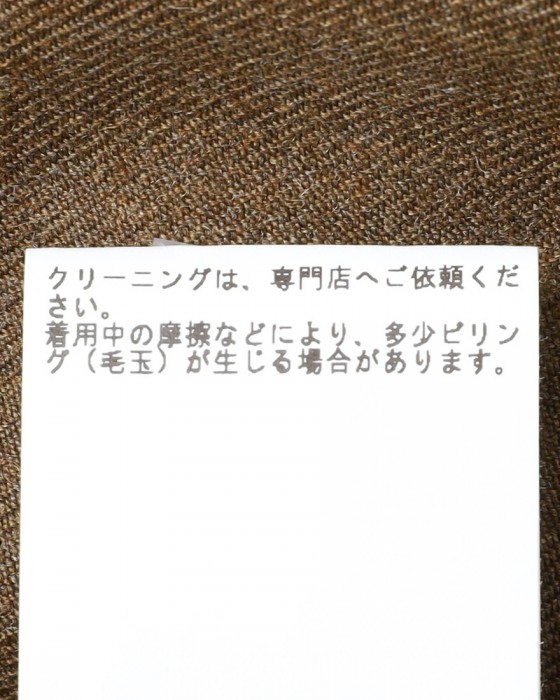 クリーニングは、専門店へご依頼くだ
さい。
着用中の摩擦などにより、多少ピリン
グ（毛玉）が生じる場合があります。